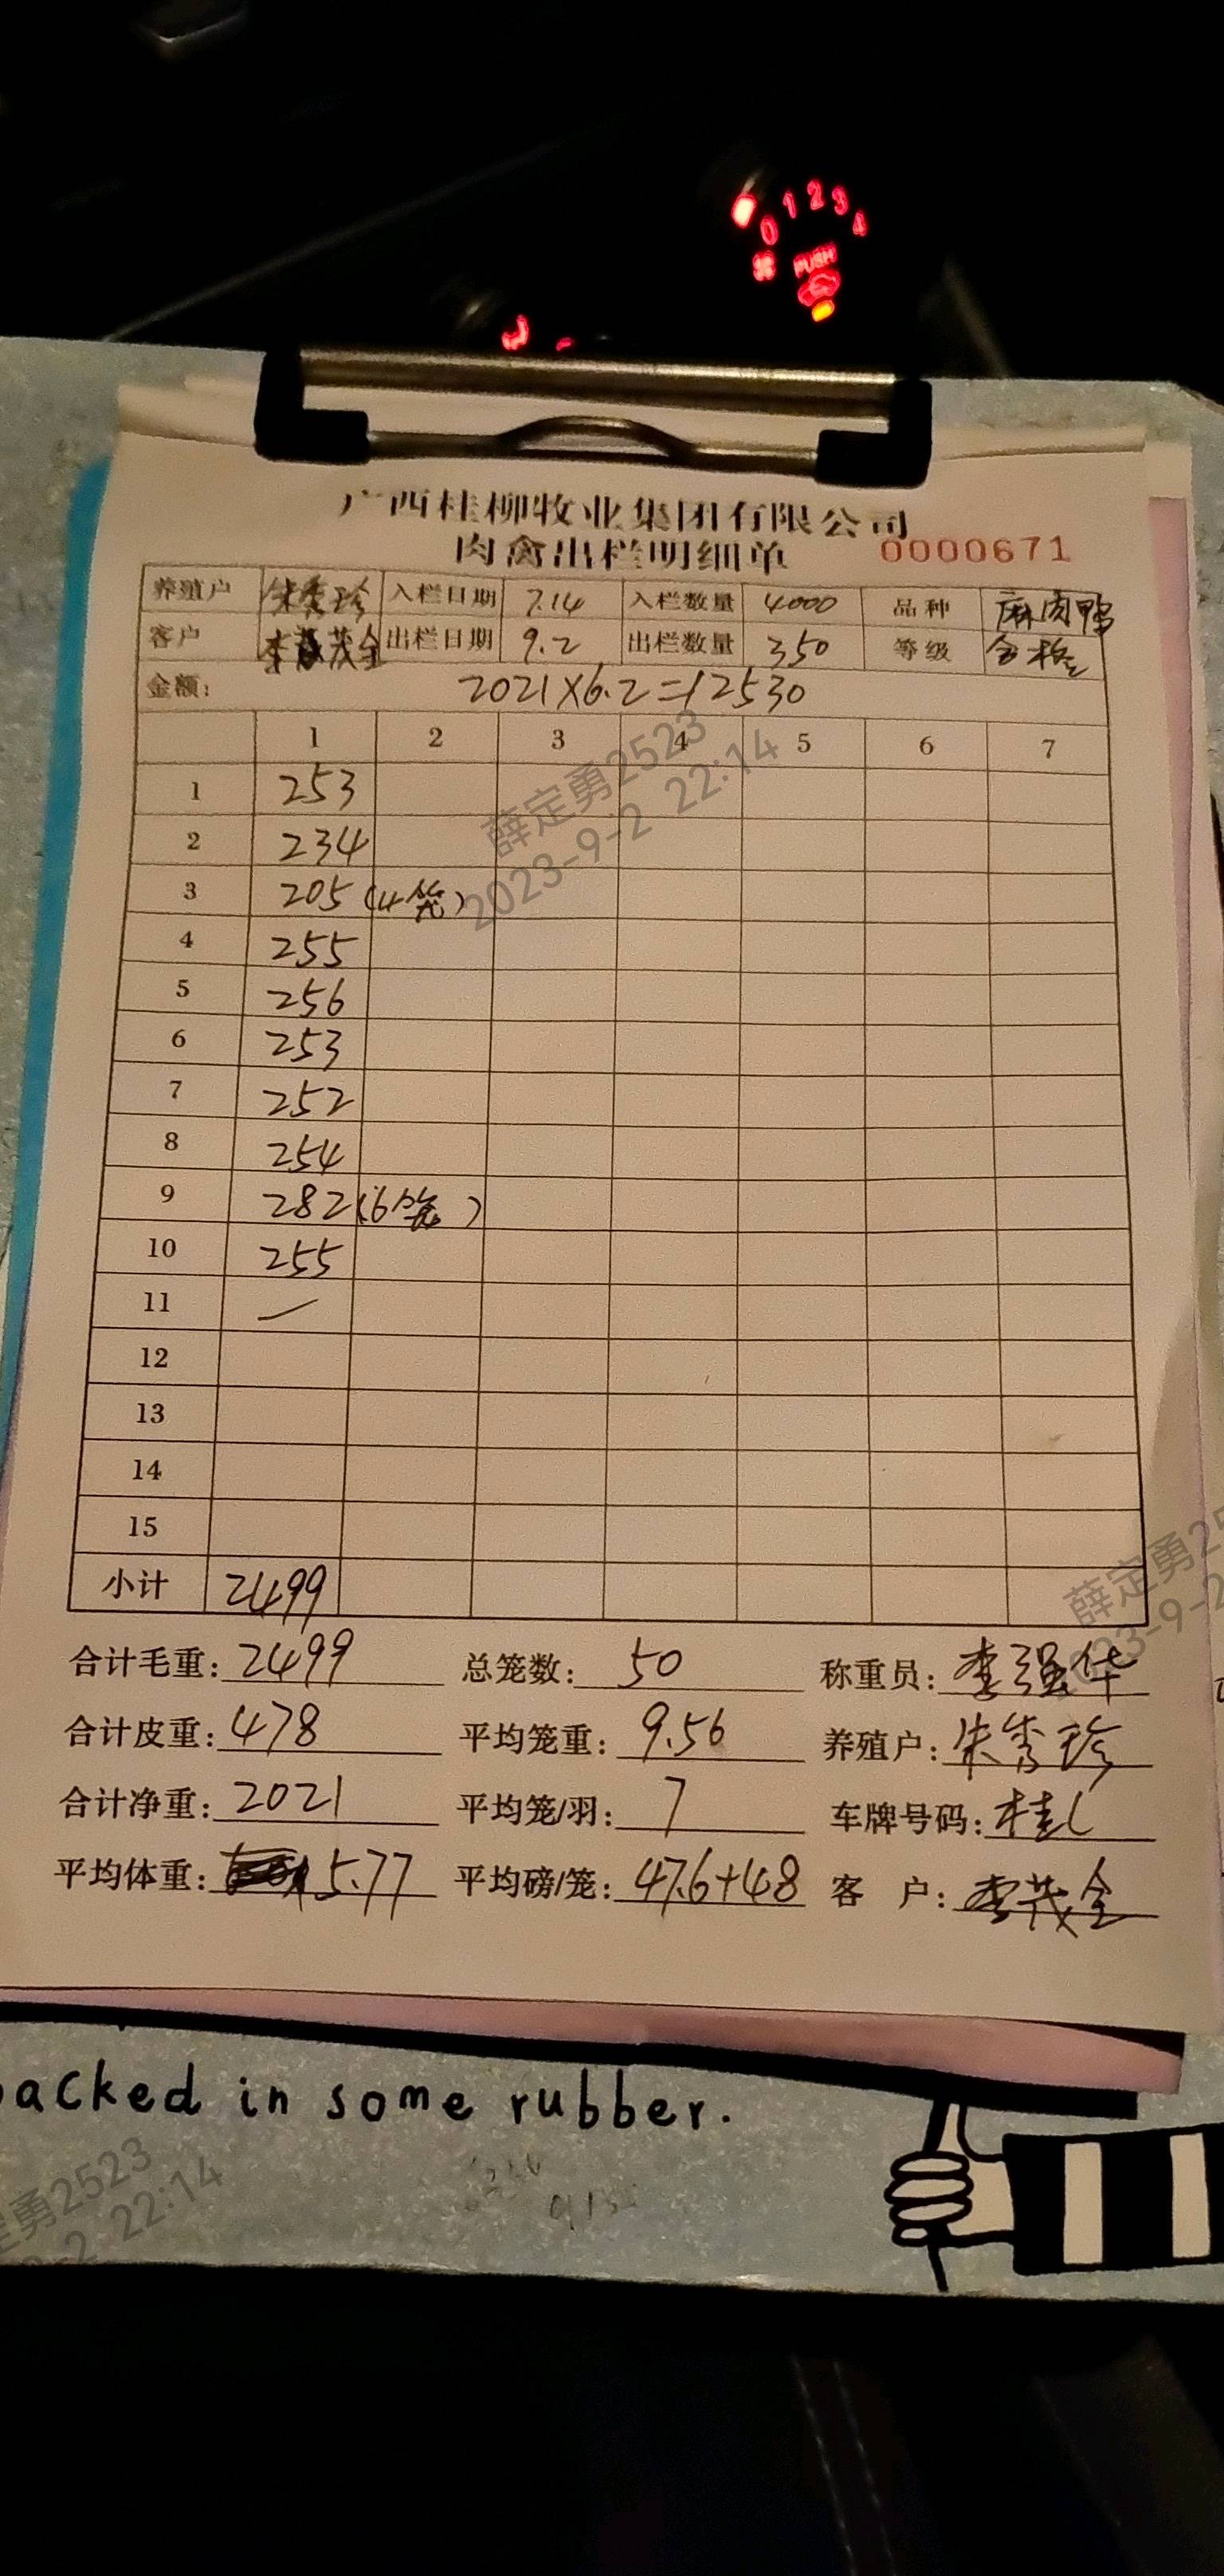 0 1 2 3 4
PUSH
广西桂柳牧业集团有限公司
肉禽出栏明细单 0000671
养殖户 朱秀珍 入栏日期 7.14 入栏数量 4000 品种 麻肉鸭
客户 李茂全 出栏日期 9.2 出栏数量 350 等级 合格
金额: 2021×6.2=12530
1 2 3 4 5 6 7
1 253
2 234
3 205 (4笼)
4 255
5 256
6 253
7 252
8 254
9 282 (6笼)
10 255
11 —
12
13
14
15
小计 2499
合计毛重: 2499 总笼数: 50 称重员: 李强华
合计皮重: 478 平均笼重: 9.56 养殖户: 朱秀珍
合计净重: 2021 平均笼/羽: 7 车牌号码: 桂L
平均体重: 5.77 平均磅/笼: 47.6+48 客 户: 李茂全
薛定勇2523
2023-9-2 22:14
acked in some rubber.